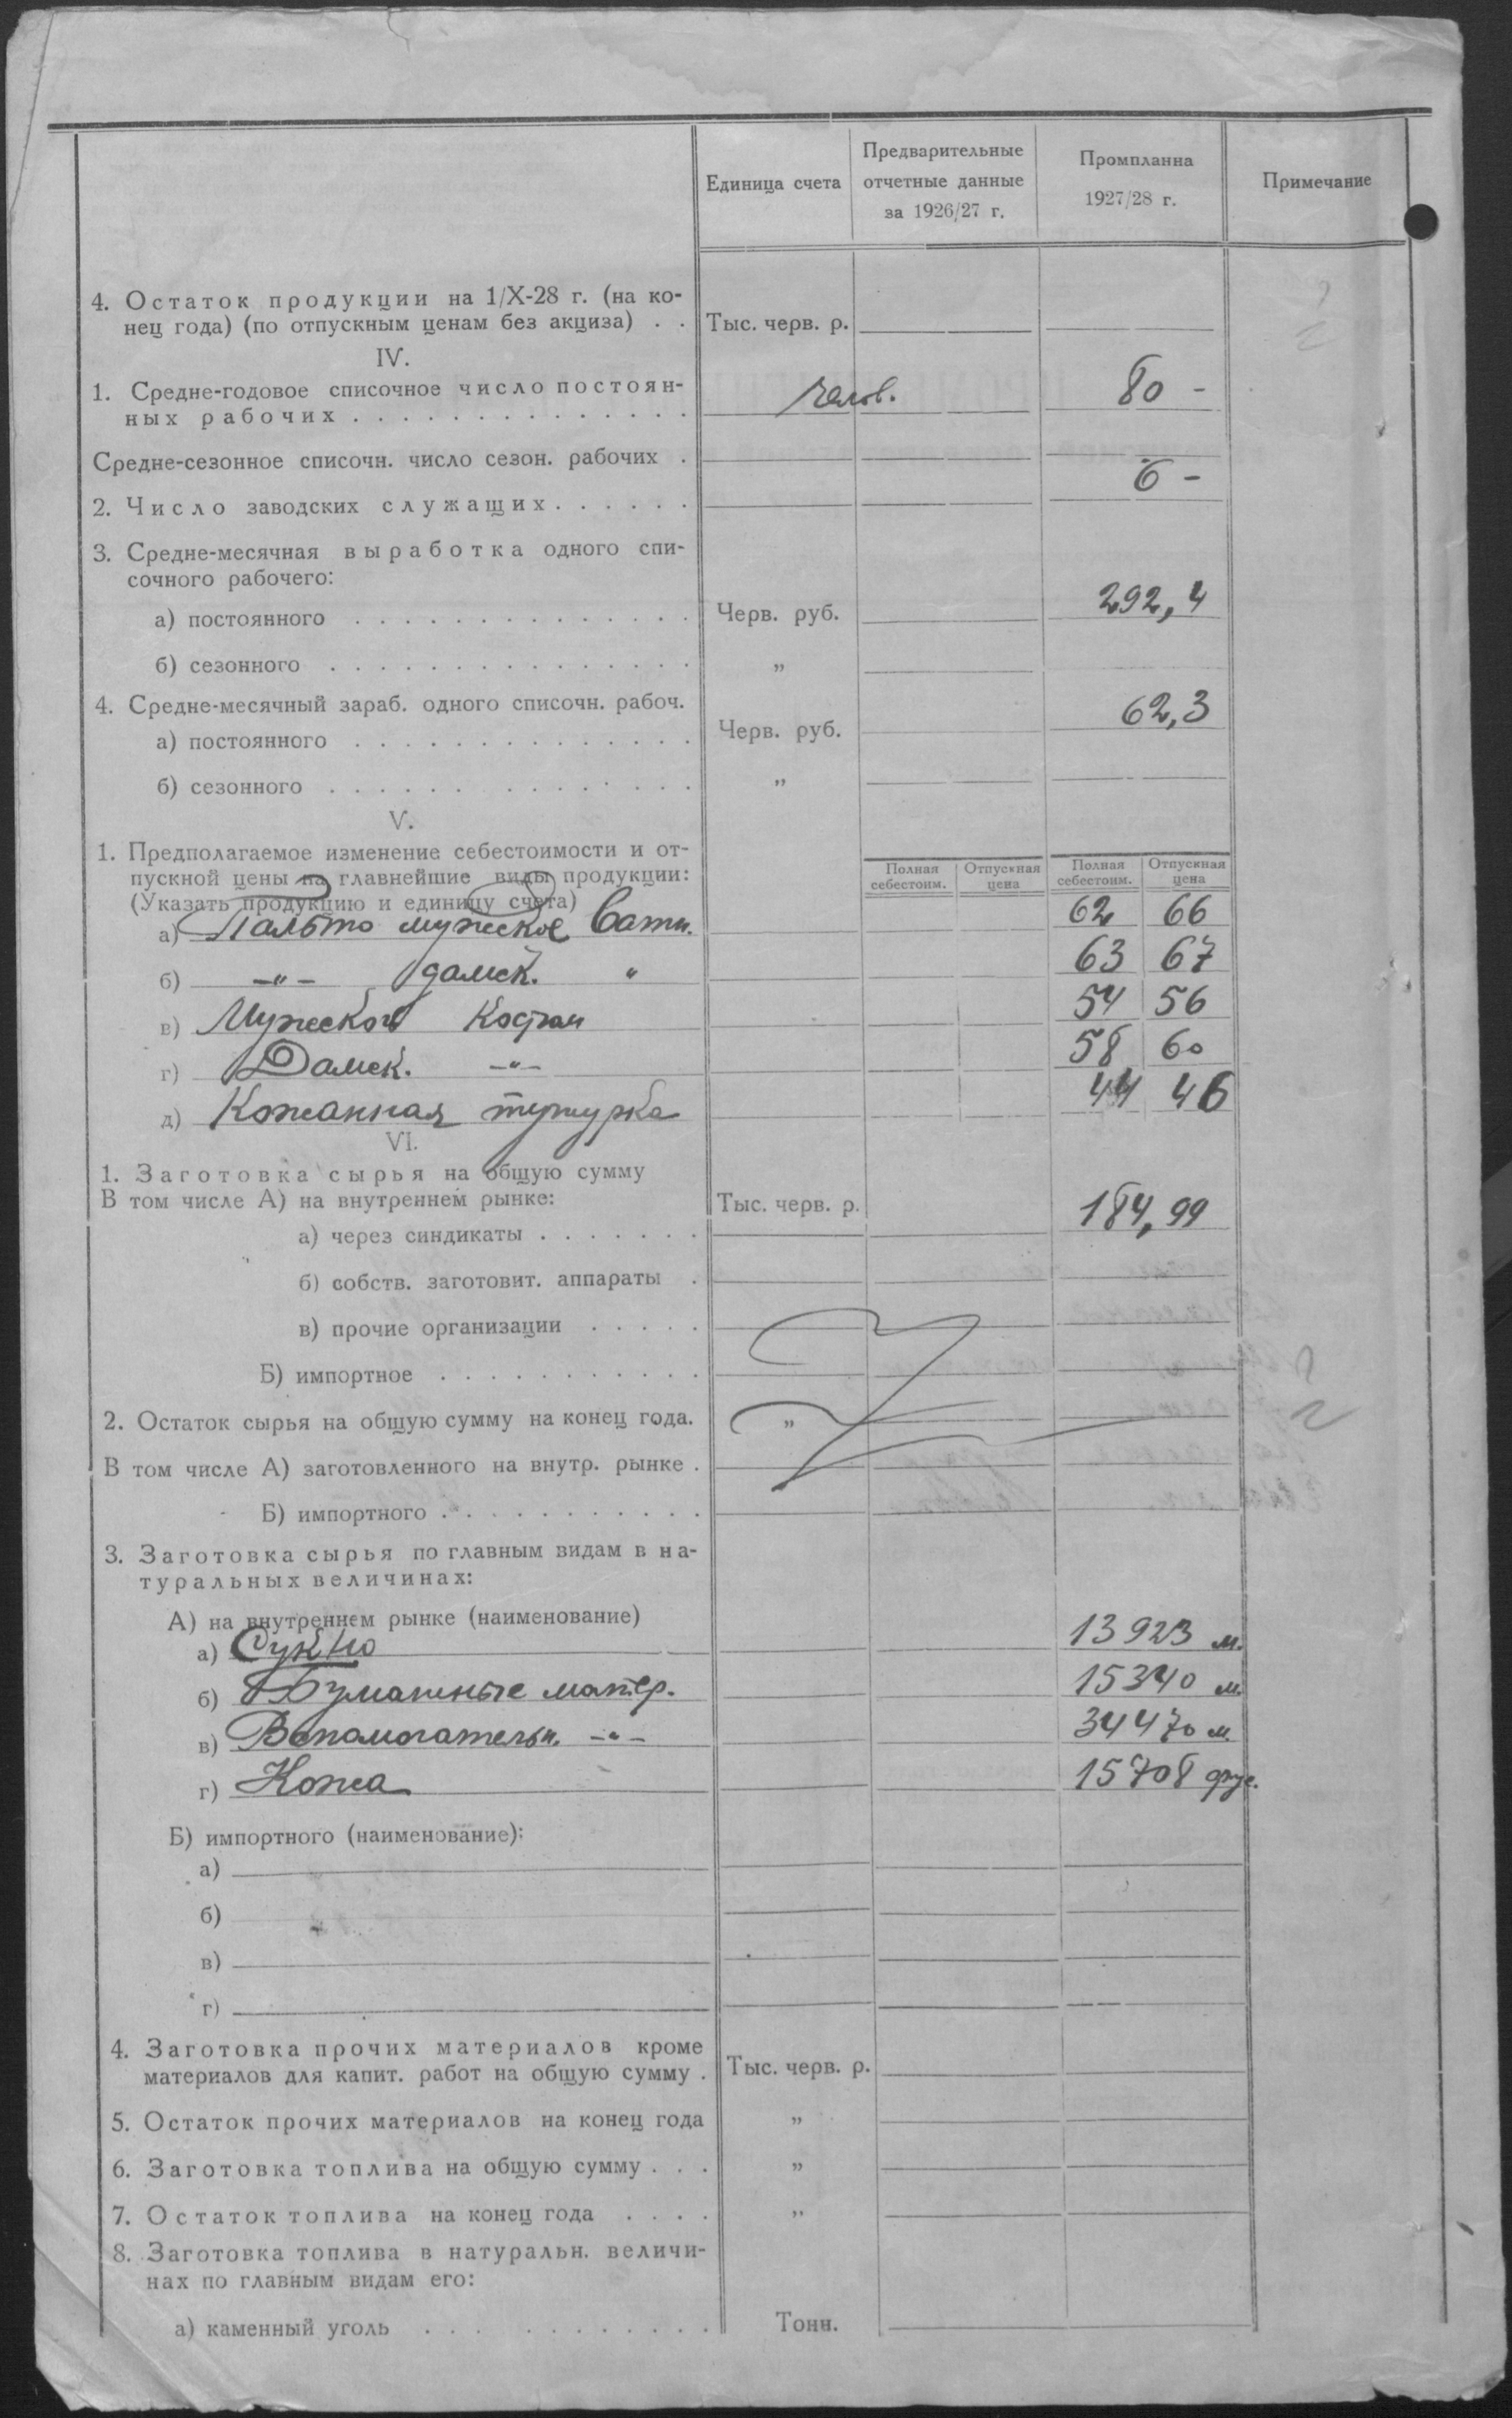 Единица счета
Предварительные
отчетные данные
за 1926/27 г.
Промпланна
1927/28 г.
Примечание
4. Остаток продукции на 1/X-28 г. (на ко-
нец года) (по отпускным ценам без акциза) . . Тыс. черв. р.
IV.
1. Средне-годовое списочное число постоян-
ных рабочих . . . . . . . . . . . . . . челов. 80 -
Средне-сезонное списочн. число сезон. рабочих .
2. Число заводских служащих . . . . . . 6 -
3. Средне-месячная выработка одного спи-
сочного рабочего:
а) постоянного . . . . . . . . . . . . . . Черв. руб. 292,4
б) сезонного . . . . . . . . . . . . . . . "
4. Средне-месячный зараб. одного списочн. рабоч.
а) постоянного . . . . . . . . . . . . . . Черв. руб. 62,3
б) сезонного . . . . . . . . . . . . . . . "
V.
1. Предполагаемое изменение себестоимости и от-
пускной цены на главнейшие виды продукции:
(Указать продукцию и единицу счета)
Полная себестоим. Отпускная цена Полная себестоим. Отпускная цена
а) Пальто мужское ватн. 62 66
б) -"- дамск. " 63 67
в) Мужской Костюм 54 56
г) Дамск. -"- 58 60
д) Кожанная тужурка 44 46
VI.
1. Заготовка сырья на общую сумму
В том числе А) на внутреннем рынке: Тыс. черв. р. 184,99
а) через синдикаты . . . . . . .
б) собств. заготовит. аппараты .
в) прочие организации . . . . .
Б) импортное . . . . . . . . . . .
2. Остаток сырья на общую сумму на конец года. "
В том числе А) заготовленного на внутр. рынке .
Б) импортного . . . . . . . . . . .
3. Заготовка сырья по главным видам в на-
туральных величинах:
А) на внутреннем рынке (наименование)
а) Сукно 13923 м.
б) Бумажные матер. 15340 м.
в) Вспомогательн. -"- 34470 м.
г) Кожа 15708 фус.
Б) импортного (наименование):
а)
б)
в)
г)
4. Заготовка прочих материалов кроме
материалов для капит. работ на общую сумму . Тыс. черв. р.
5. Остаток прочих материалов на конец года "
6. Заготовка топлива на общую сумму . . . "
7. Остаток топлива на конец года . . . . "
8. Заготовка топлива в натуральн. величи-
нах по главным видам его:
а) каменный уголь . . . . . . . . . . . . Тонн.